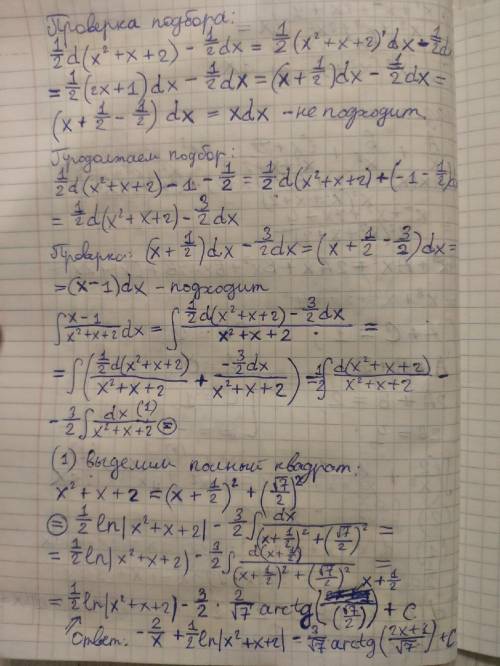 Проверка подбора:
1/2 d(x²+x+2) - 1/2 dx = 1/2 (x²+x+2)' dx - 1/2 d
= 1/2 (2x+1) dx - 1/2 dx = (x + 1/2) dx - 1/2 dx =
(x + 1/2 - 1/2) dx = xdx - не подходит.
Продолжаем подбор:
1/2 d(x²+x+2) - 1 - 1/2 = 1/2 d(x²+x+2) + (-1 - 1/2)
= 1/2 d(x²+x+2) - 3/2 dx
Проверка: (x + 1/2) dx - 3/2 dx = (x + 1/2 - 3/2) dx =
= (x-1) dx - подходит
∫ (x-1)/(x²+x+2) dx = ∫ (1/2 d(x²+x+2) - 3/2 dx)/(x²+x+2) =
= ∫ ( (1/2 d(x²+x+2))/(x²+x+2) + (-3/2 dx)/(x²+x+2) ) = 1/2 ∫ d(x²+x+2)/(x²+x+2) -
- 3/2 ∫ dx/(x²+x+2) (1) ⊜
(1) выделим полный квадрат:
x² + x + 2 = (x + 1/2)² + (√7/2)²
⊜ 1/2 ln|x²+x+2| - 3/2 ∫ dx/((x + 1/2)² + (√7/2)²) =
= 1/2 ln|x²+x+2| - 3/2 ∫ d(x + 1/2)/((x + 1/2)² + (√7/2)²) =
= 1/2 ln|x²+x+2| - 3/2 · 2/√7 arctg((x + 1/2)/(√7/2)) + C
Ответ: - 2/x + 1/2 ln|x²+x+2| - 3/√7 arctg((2x+1)/√7) + C